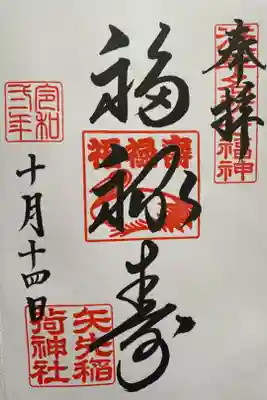 奉拝
福禄寿
福禄寿
令和弐年
十月十四日
矢先稲荷神社